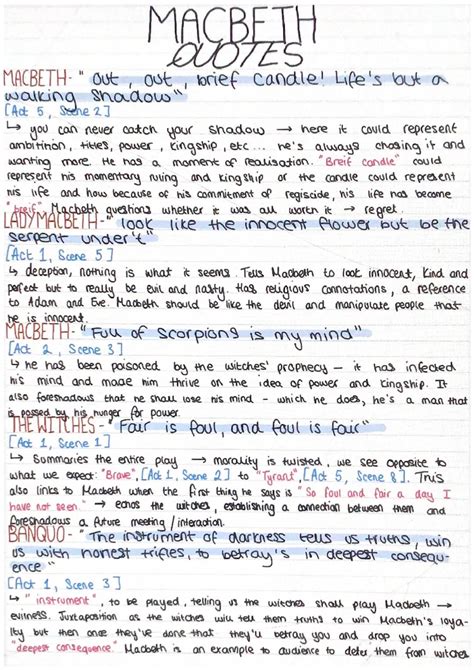 MACBETH
QUOTES
MACBETH - "Out, out, brief candle! Life's but a
walking shadow"
[Act 5, Scene 2]
↳ you can never catch your shadow → here it could represent
ambitinon, titles, power, kingship, etc... he's always chasing it and
wanting more. He has a moment of realisation. "Breif candle" could
represent his momentary ruling and kingship or the candle could represent
his life and how because of his commitment of regiscide, his life has become
"breif". Macbeth questions whether it was all worth it → regret.
LADYMACBETH - "look like the innocent flower but be the
serpent under't"
[Act 1, Scene 5]
↳ deception, nothing is what it seems. Tells Macbeth to look innocent, kind and
perfect but to really be evil and nasty. Has religious connotations, a reference
to Adam and Eve. Macbeth should be like the devil and manipulate people that
he is innocent.
MACBETH - "Full of scorpions is my mind"
[Act 2, Scene 3]
↳ he has been poisoned by the witches' prophecy — it has infected
his mind and made him thrive on the idea of power and kingship. It
also foreshadows that he shall lose his mind - which he does, he's a man that
is possed by his hunger for power.
THE WITCHES - "Fair is foul, and foul is fair"
[Act 1, Scene 1]
↳ Summaries the entire play → morality is twisted, we see opposite to
what we expect: "Brave", [Act 1, Scene 2] → to "Tyrant", [Act 5, Scene 8]. This
also links to Macbeth when the first thing he says is "So foul and fair a day I
have not seen." → echos the witches, establishing a connection between them and
foreshadows a future meeting / interaction.
BANQUO - "The instrument of darkness tells us truths, win
us with honest trifles, to betray's in deepest consequ-
ence"
[Act 1, Scene 3]
↳ "instrument", to be played, telling us the witches shall play Macbeth →
evilness. Juxtaposition as the witches will tell them truths to win Macbeth's loya-
lty but then once they've done that they'll betray you and drop you into
"deepest consequence." Macbeth is an example to audience to deter them from witches